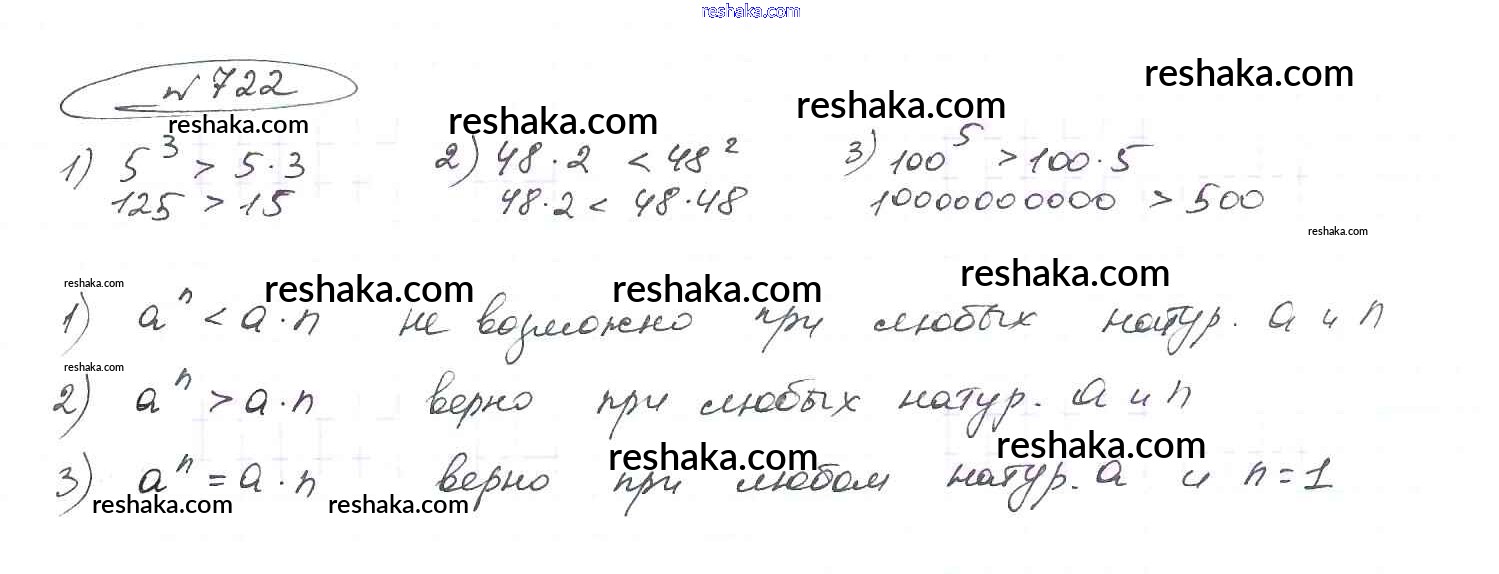 reshaka.com
№722
reshaka.com
reshaka.com
reshaka.com
reshaka.com
1) 5³ > 5·3
2) 48·2 < 48²
3) 100⁵ > 100·5
125 > 15
48·2 < 48·48
10000000000 > 500
reshaka.com
reshaka.com
reshaka.com
reshaka.com
reshaka.com
1) aⁿ < a·n не возможно при любых натур. a и n
reshaka.com
2) aⁿ > a·n верно при любых натур. a и n
reshaka.com
reshaka.com
3) aⁿ = a·n верно при любом натур. a и n = 1
reshaka.com
reshaka.com